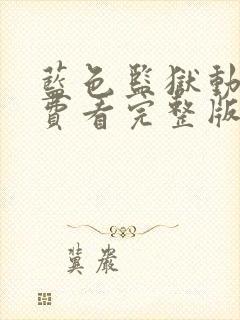 藍色監獄動
費看完整版
冀嚴